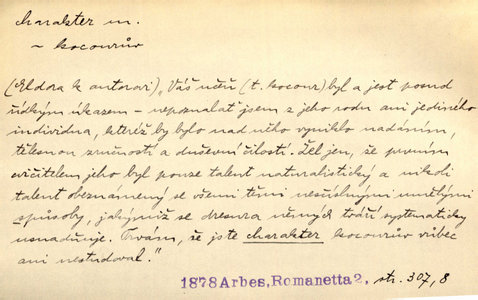 charakter m.
~ kocourův
(Eldora k autorovi) „Váš učeň (t. kocour) byl a jest posud
řídkým úkazem – nepoznalať jsem z jeho rodu ani jediného
individua, kteréž by bylo nad něho vyniklo nadáním,
tělesnou zručností a duševní čilostí. Žel jen, že prvním
cvičitelem jeho byl pouze talent naturalistický a nikoli
talent obeznámený se všemi těmi nesčíslnými umělými
způsoby, jakýmiž se dresura němých tváří systematicky
usnadňuje. Trvám, že jste charakter kocourův vůbec
ani nestudoval."
1878 Arbes, Romanetta 2, str. 307, 8